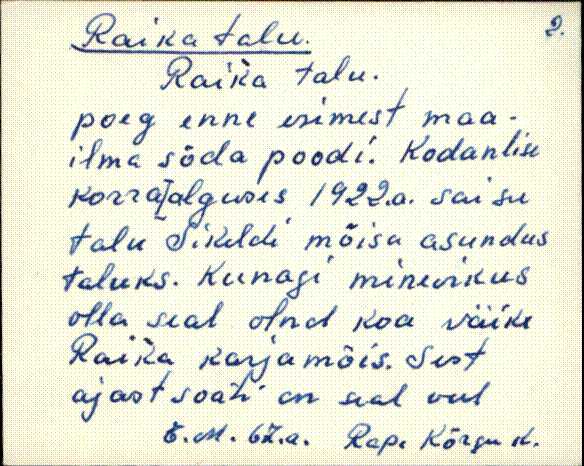 2.
Raika talu.
Raika talu.
poeg enne esimest maa-
ilma sõda poodi. Kodanlise
korra alguses 1922.a. sai su
talu Sikeldi mõisa asundus
taluks. Kunagi minevikus
olla seal olnd koa väike
Raika karjamõis. Sest
ajast soati on seal veel
E.M. 67.a. Rap. Kõrgu k.